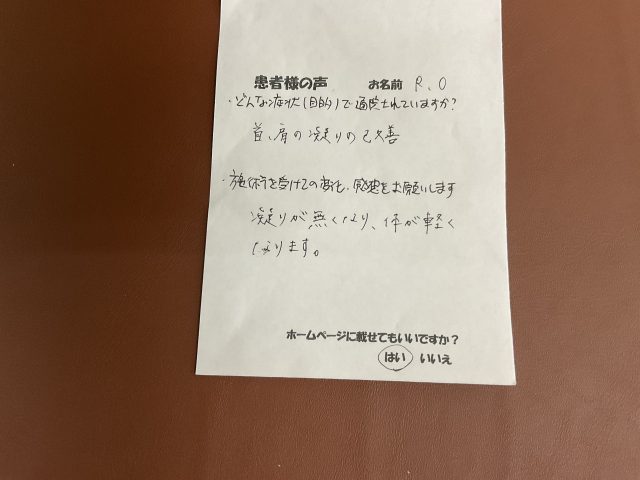 患者様の声 お名前 R.O
・どんな症状(目的)で通院されていますか?
首、肩の凝りの改善
・施術を受けての変化、感想をお願いします
凝りが無くなり、体が軽く
なります。
ホームページに載せてもいいですか?
はい いいえ